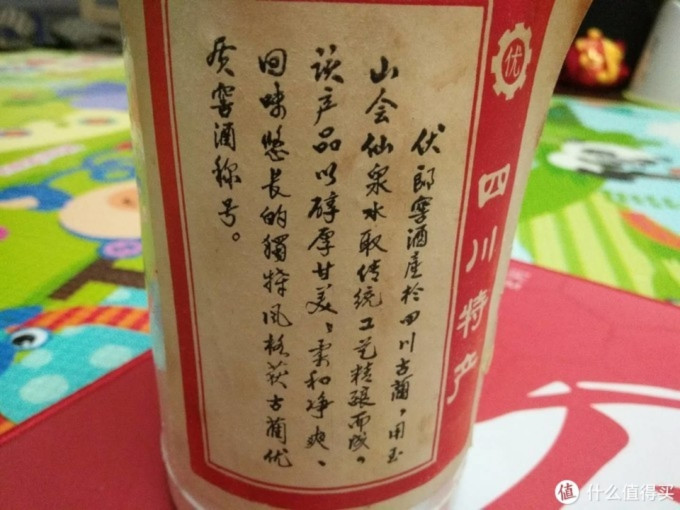 优
四川特产
伏郎窖酒產於四川古蔺，用玉
山会仙泉水取传统工艺精酿而成。
该产品以醇厚甘美、柔和净爽、
回味悠长的獨特风格获古蔺优
质窖酒称号。
值 什么值得买